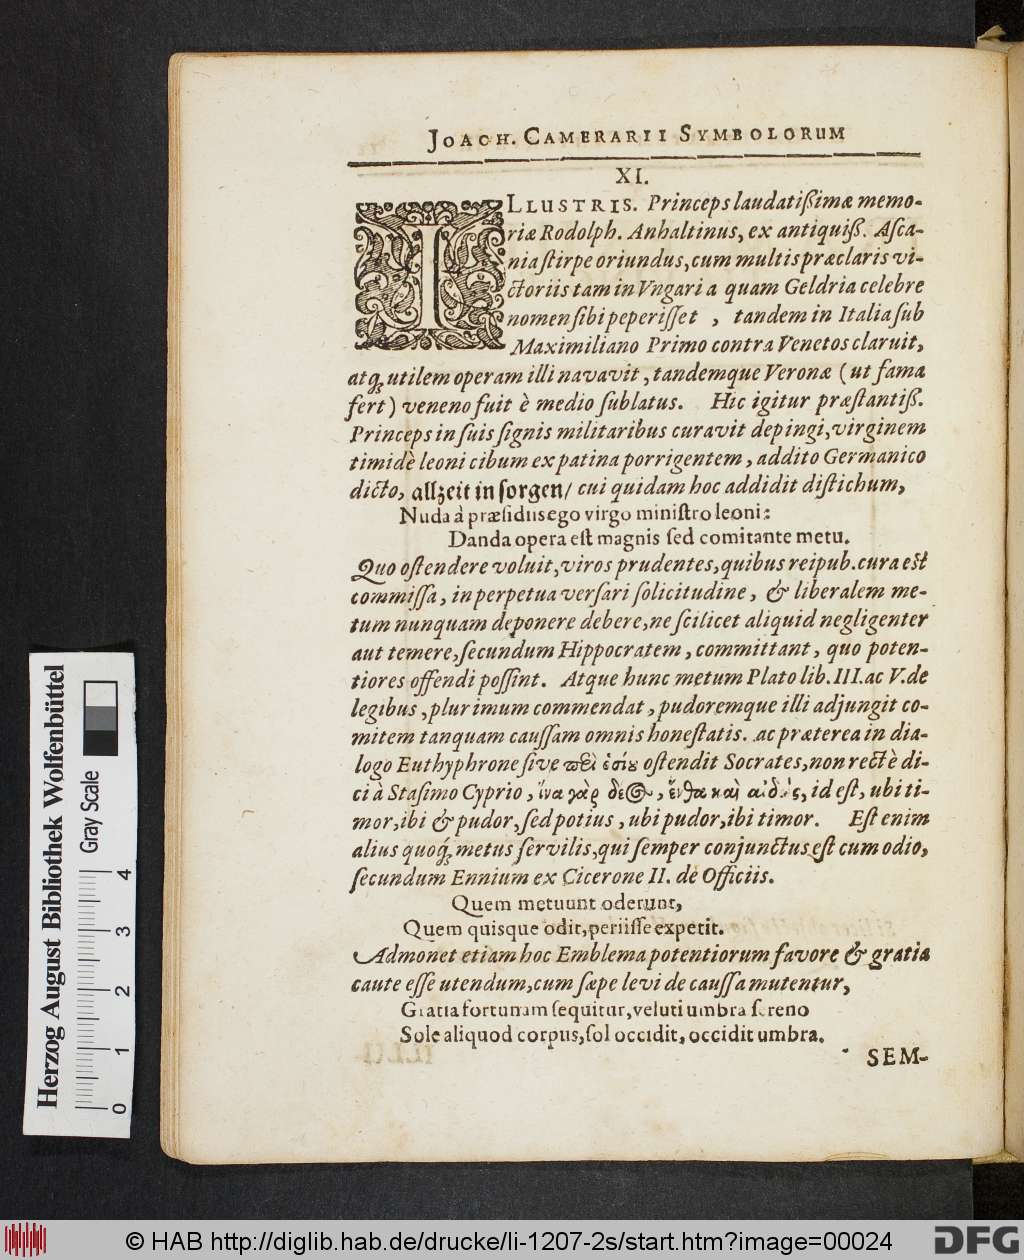 JOACH. CAMERARII SYMBOLORUM
XI.
ILLUSTRIS. Princeps laudatißimæ memo-
riæ Rodolph. Anhaltinus, ex antiquiß. Aſca-
nia ſtirpe oriundus, cum multis præclaris vi-
ctoriis tam in Vngaria quam Geldria celebre
nomen ſibi peperiſſet , tandem in Italia ſub
Maximiliano Primo contra Venetos claruit,
atq́; utilem operam illi navavit, tandemque Veronæ (ut fama
fert) veneno fuit è medio ſublatus. Hic igitur præſtantiß.
Princeps in ſuis ſignis militaribus curavit depingi, virginem
timidè leoni cibum ex patina porrigentem, addito Germanico
dicto, allzeit in ſorgen/ cui quidam hoc addidit diſtichum,
Nuda à præſidiis ego virgo miniſtro leoni:
Danda opera eſt magnis ſed comitante metu.
Quo oſtendere voluit, viros prudentes, quibus reipub. cura eſt
commiſſa, in perpetua verſari ſolicitudine, & liberalem me-
tum nunquam deponere debere, ne ſcilicet aliquid negligenter
aut temere, ſecundum Hippocratem, committant, quo poten-
tiores offendi poſſint. Atque hunc metum Plato lib. III. ac V. de
legibus, plurimum commendat, pudoremque illi adjungit co-
mitem tanquam cauſſam omnis honeſtatis. ac præterea in dia-
logo Euthyphrone ſive πεὶ ὁσίου oſtendit Socrates, non rectè di-
ci à Staſimo Cyprio, ἵνα γὰρ δέος, ἔνθα καὶ αἰδώς, id eſt, ubi ti-
mor, ibi & pudor, ſed potius, ubi pudor, ibi timor. Eſt enim
alius quoq́; metus ſervilis, qui ſemper conjunctus eſt cum odio,
ſecundum Ennium ex Cicerone II. de Officiis.
Quem metuunt oderunt,
Quem quisque odit, periiſſe expetit.
Admonet etiam hoc Emblema potentiorum favore & gratia
caute eſſe utendum, cum ſæpe levi de cauſſa mutentur,
Gratia fortunam ſequitur, veluti umbra ſereno
Sole aliquod corpus, ſol occidit, occidit umbra.
SEM-
Herzog August Bibliothek Wolfenbüttel
Gray Scale
0 1 2 3 4
© HAB http://diglib.hab.de/drucke/li-1207-2s/start.htm?image=00024
DFG